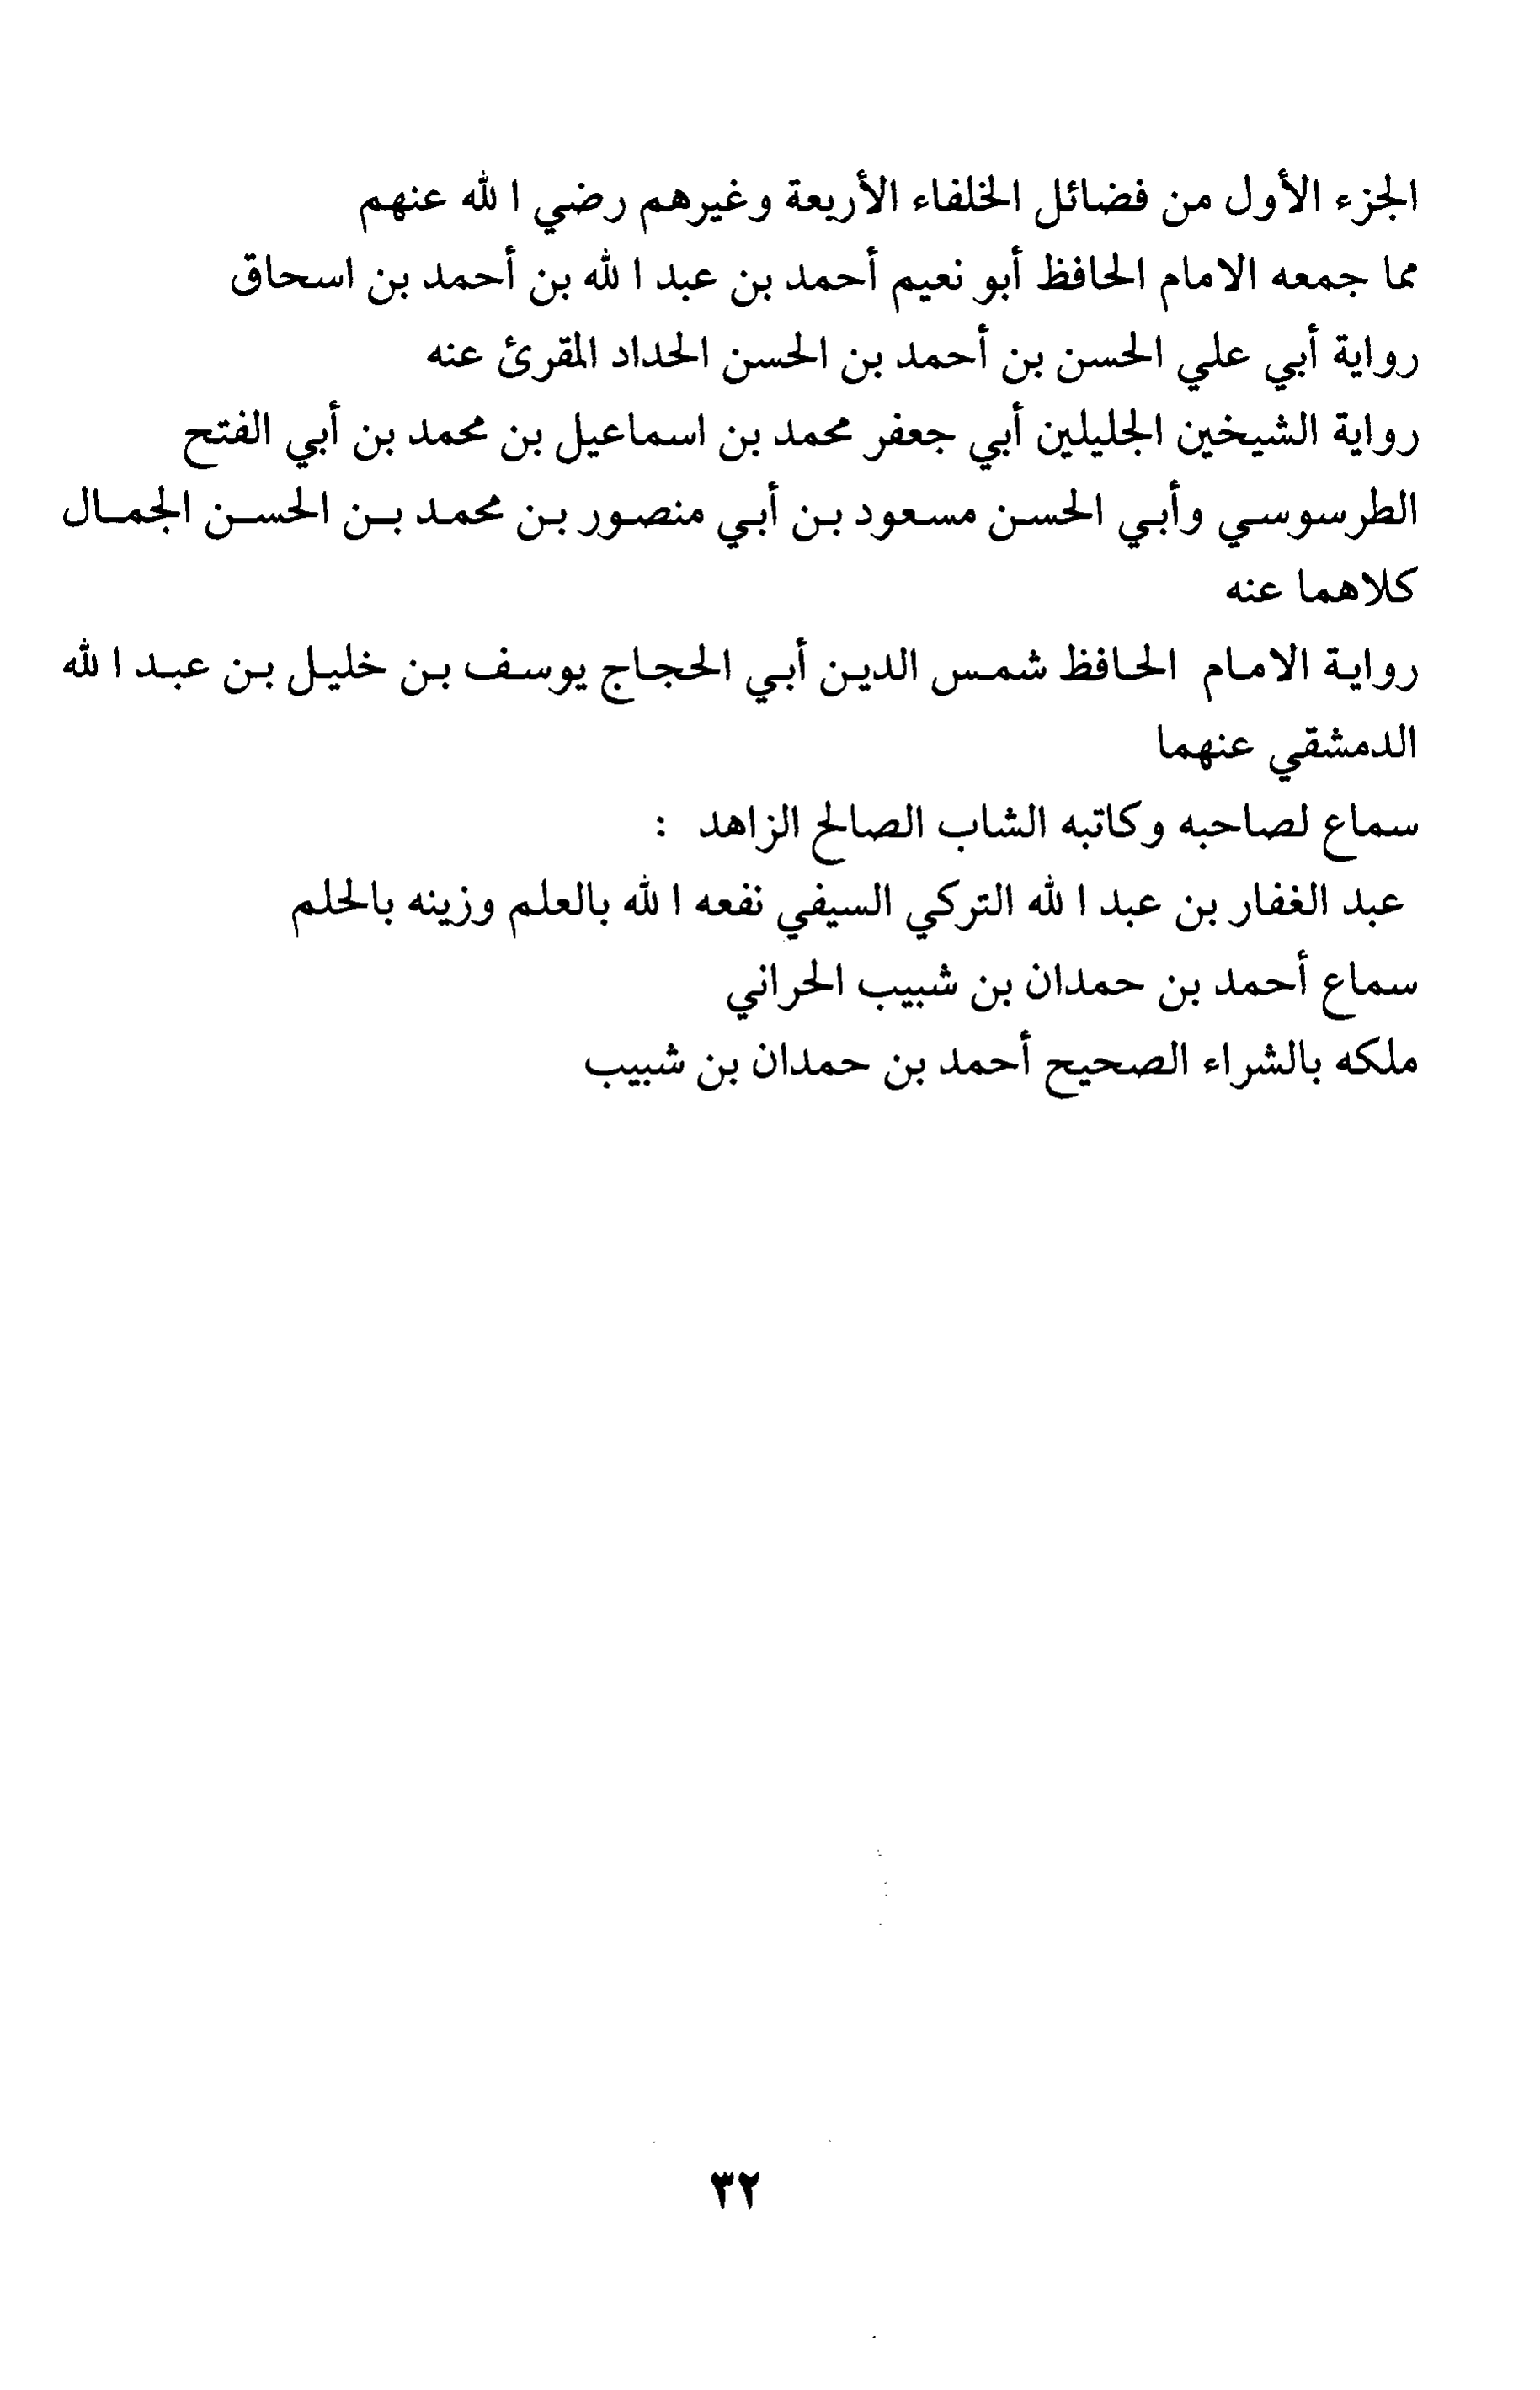 الجزء الأول من فضائل الخلفاء الأربعة وغيرهم رضي الله عنهم
مما جمعه الامام الحافظ أبو نعيم أحمد بن عبد الله بن أحمد بن اسحاق
رواية أبي علي الحسن بن أحمد بن الحسن الحداد المقرئ عنه
رواية الشيخين الجليلين أبي جعفر محمد بن اسماعيل بن محمد بن أبي الفتح
الطرسوسي وأبي الحسن مسعود بن أبي منصور بن محمد بن الحسن الجمال
كلاهما عنه
رواية الامام الحافظ شمس الدين أبي الحجاج يوسف بن خليل بن عبد الله
الدمشقي عنهما
سماع لصاحبه وكاتبه الشاب الصالح الزاهد :
عبد الغفار بن عبد الله التركي السيفي نفعه الله بالعلم وزينه بالحلم
سماع أحمد بن حمدان بن شبيب الحراني
ملكه بالشراء الصحيح أحمد بن حمدان بن شبيب
٣٢